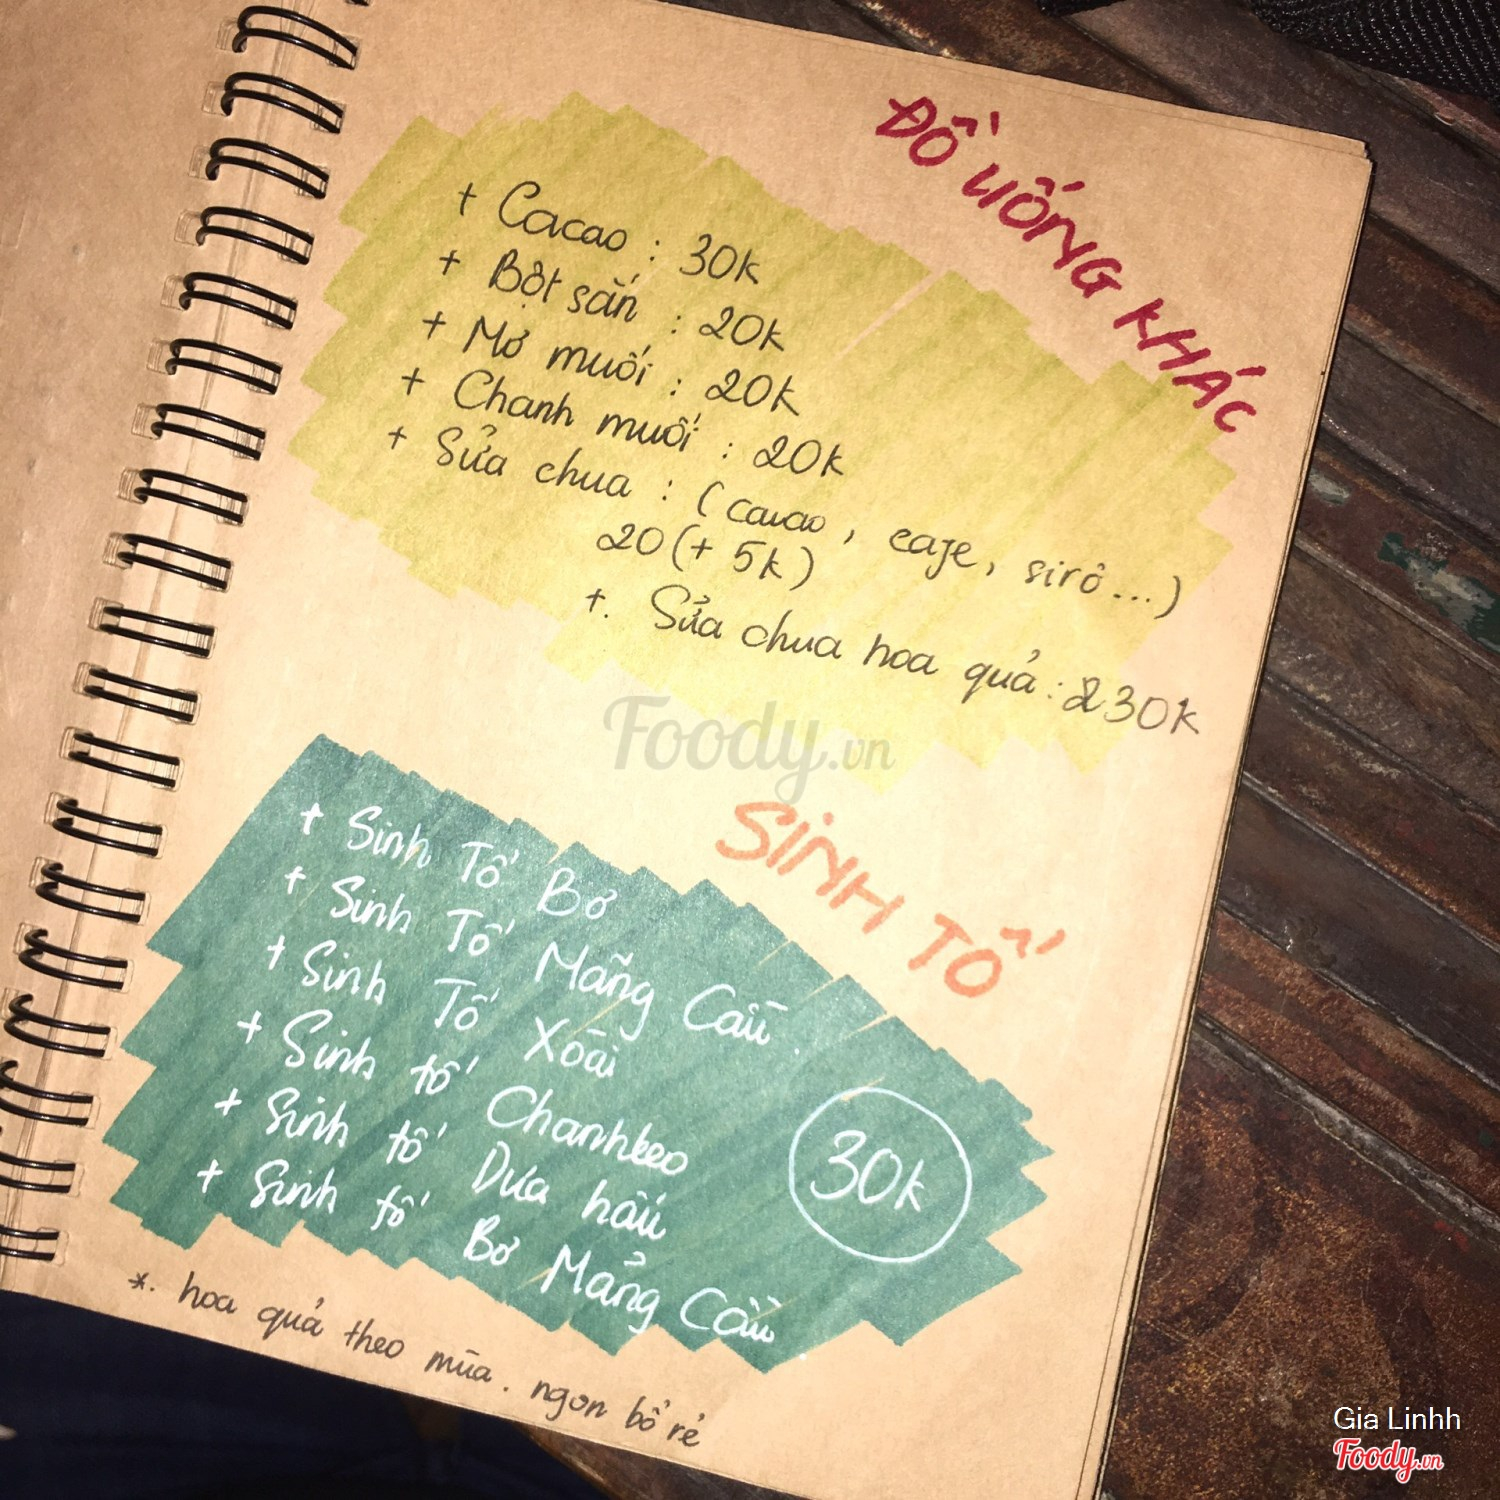 ĐỒ UỐNG KHÁC
+ Cacao : 30k
+ Bột sắn : 20k
+ Mơ muối : 20k
+ Chanh muối : 20k
+ Sữa chua : (cacao, cafe, sirô...)
20(+ 5k)
+. Sữa chua hoa quả : 30k
Foody.vn
SINH TỐ
+ Sinh Tố Bơ
+ Sinh Tố Mãng Cầu.
+ Sinh Tố Xoài
+ Sinh tố Chanhleo
+ Sinh tố Dưa hấu
+ Sinh tố Bơ Mãng Cầu
30k
*. hoa quả theo mùa. ngon bổ rẻ
Gia Linhh
Foody.vn